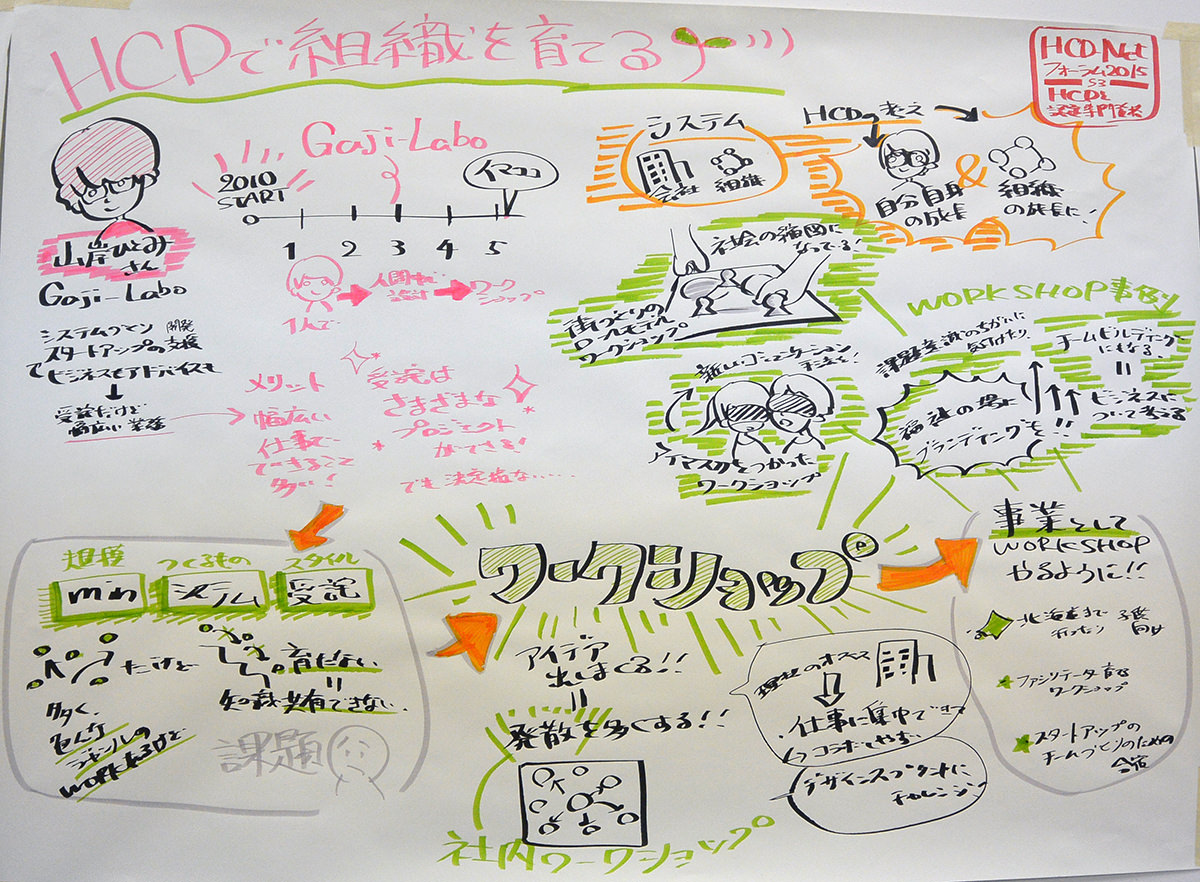 HCDで組織を育てる
HCD-Net
フォーラム2015
S3
HCDと
認定専門家
山岸ひとみ
さん
Gaji-Labo
システムプラン 開発
スタートアップの支援
で ビジネスもアドバイスも
受託だけど
幅広い業務
Gaji-Labo
2010
START
イマココ
1 2 3 4 5
1人で
人間中心
設計
ワーク
ショップ
メリット
幅広い
仕事で
できること
多い!
受託は
さまざまな
プロジェクト
ができる!
でも決定権ない....
システム
会社
組織
HCDの考え
自分自身
の成長
&
組織
の成長に!
社会の縮図に
なってる!
街づくりの
ロールモデル
ワークショップ
新しいコミュニケーション
手法を!
アイマスクをつかった
ワークショップ
WORKSHOP事例
課題意識のちがいに
気付けたり
チームビルディング
にもなる
=
ビジネスに
ついて考える
福祉の場に
ブランディングを!!
規模
min
つくるもの
システム
スタイル
受託
多く、
色んな
ジャンルの
workあるけど
だけど
育たない
=
知識共有できない
課題
ワークショップ
アイデア
出しまくる!!
=
発散を多くする!!
社内ワークショップ
理想のオフィス
仕事に集中できて
コラボしやすい
デザインスプリントに
チャレンジ
事業として
WORKSHOP
やるように!!
北海道まで
行ったり
子供
向け
ファシリテータ育成
ワークショップ
スタートアップの
チームづくりのための
合宿